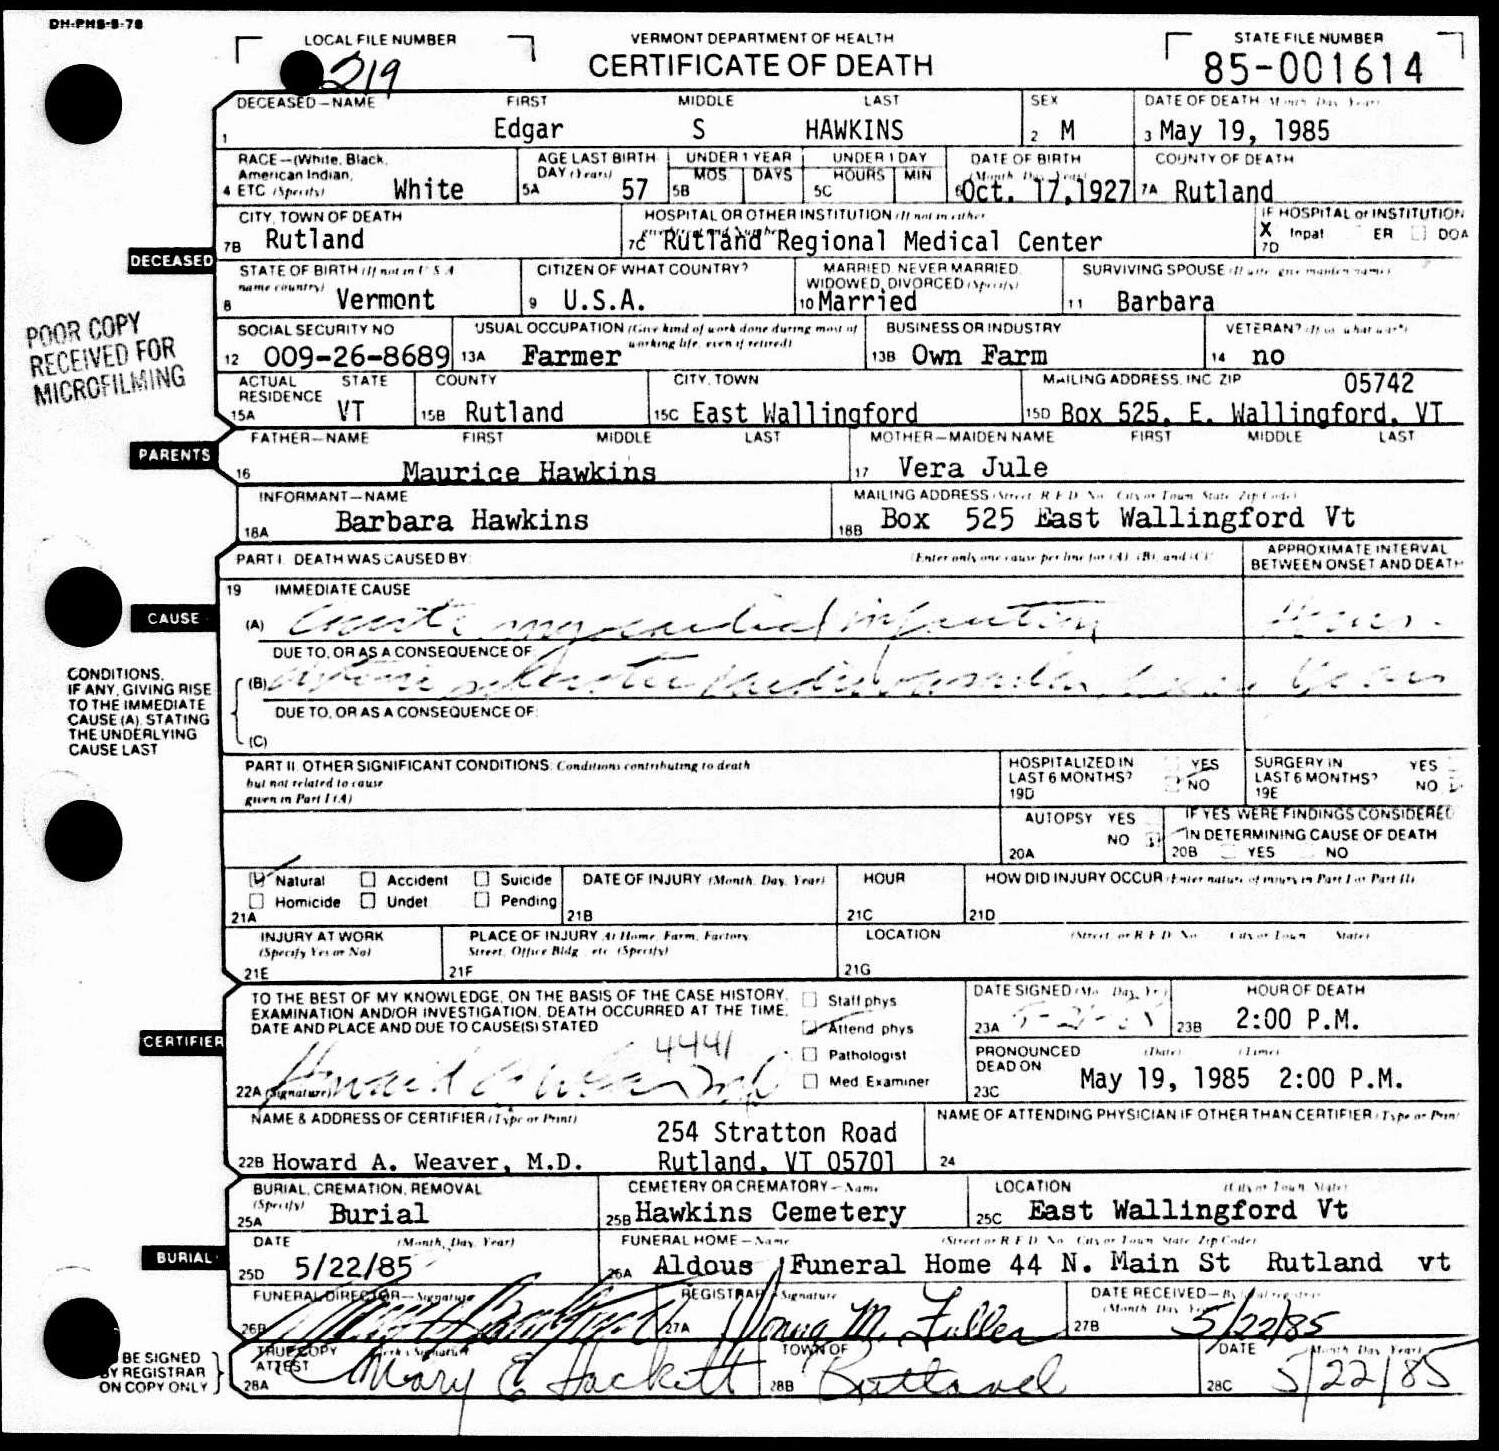 DH-PHS-8-78
LOCAL FILE NUMBER
219
VERMONT DEPARTMENT OF HEALTH
CERTIFICATE OF DEATH
STATE FILE NUMBER
85-001614
DECEASED—NAME FIRST MIDDLE LAST
1 Edgar S HAWKINS
SEX
2 M
DATE OF DEATH (Month, Day, Year)
3 May 19, 1985
RACE—(White, Black, American Indian, ETC (Specify)
4 White
AGE LAST BIRTH DAY (Years)
5A 57
UNDER 1 YEAR MOS DAYS
5B
UNDER 1 DAY HOURS MIN
5C
DATE OF BIRTH (Month, Day, Year)
6 Oct. 17, 1927
COUNTY OF DEATH
7A Rutland
CITY, TOWN OF DEATH
7B Rutland
HOSPITAL OR OTHER INSTITUTION (If not in either give Street and Number)
7C Rutland Regional Medical Center
IF HOSPITAL or INSTITUTION
X Inpat ER DOA
7D
DECEASED
STATE OF BIRTH (If not in U S A name country)
8 Vermont
CITIZEN OF WHAT COUNTRY?
9 U.S.A.
MARRIED, NEVER MARRIED, WIDOWED, DIVORCED (Specify)
10 Married
SURVIVING SPOUSE (If wife, give maiden name)
11 Barbara
POOR COPY
RECEIVED FOR
MICROFILMING
SOCIAL SECURITY NO
12 009-26-8689
USUAL OCCUPATION (Give kind of work done during most of working life, even if retired)
13A Farmer
BUSINESS OR INDUSTRY
13B Own Farm
VETERAN? (If so, what war?)
14 no
ACTUAL RESIDENCE STATE
15A VT
COUNTY
15B Rutland
CITY, TOWN
15C East Wallingford
MAILING ADDRESS, INC ZIP 05742
15D Box 525, E. Wallingford, VT
PARENTS
FATHER—NAME FIRST MIDDLE LAST
16 Maurice Hawkins
MOTHER—MAIDEN NAME FIRST MIDDLE LAST
17 Vera Jule
INFORMANT—NAME
18A Barbara Hawkins
MAILING ADDRESS (Street, R F D No City or Town State, Zip Code)
18B Box 525 East Wallingford Vt
PART I. DEATH WAS CAUSED BY: (Enter only one cause per line for (A), (B), and (C))
APPROXIMATE INTERVAL BETWEEN ONSET AND DEATH
CAUSE
19 IMMEDIATE CAUSE
(A) acute myocardial infarction
DUE TO, OR AS A CONSEQUENCE OF
(B) Years
DUE TO, OR AS A CONSEQUENCE OF:
(C)
CONDITIONS,
IF ANY, GIVING RISE
TO THE IMMEDIATE
CAUSE (A), STATING
THE UNDERLYING
CAUSE LAST
PART II. OTHER SIGNIFICANT CONDITIONS: Conditions contributing to death
but not related to cause
given in Part I (A)
HOSPITALIZED IN LAST 6 MONTHS? YES NO
19D
SURGERY IN LAST 6 MONTHS? YES NO
19E
AUTOPSY YES NO
20A
IF YES WERE FINDINGS CONSIDERED IN DETERMINING CAUSE OF DEATH
20B YES NO
Natural Accident Suicide
Homicide Undet. Pending
21A
DATE OF INJURY (Month, Day, Year)
21B
HOUR
21C
HOW DID INJURY OCCUR (Enter nature of injury in Part I or Part II)
21D
INJURY AT WORK (Specify Yes or No)
21E
PLACE OF INJURY At Home, Farm, Factory, Street, Office Bldg., etc. (Specify)
21F
LOCATION (Street, or R F D No City or Town State)
21G
CERTIFIER
TO THE BEST OF MY KNOWLEDGE, ON THE BASIS OF THE CASE HISTORY,
EXAMINATION AND/OR INVESTIGATION, DEATH OCCURRED AT THE TIME,
DATE AND PLACE AND DUE TO CAUSE(S) STATED
4441
22A (Signature)
Staff phys
Attend phys
Pathologist
Med. Examiner
DATE SIGNED (Mo., Day, Yr.)
23A
HOUR OF DEATH
23B 2:00 P.M.
PRONOUNCED DEAD ON (Date) (Time)
23C May 19, 1985 2:00 P.M.
NAME & ADDRESS OF CERTIFIER (Type or Print)
254 Stratton Road
22B Howard A. Weaver, M.D. Rutland, VT 05701
NAME OF ATTENDING PHYSICIAN IF OTHER THAN CERTIFIER (Type or Print)
24
BURIAL, CREMATION, REMOVAL (Specify)
25A Burial
CEMETERY OR CREMATORY—Name
25B Hawkins Cemetery
LOCATION (City or Town, State)
25C East Wallingford Vt
BURIAL
DATE (Month, Day, Year)
25D 5/22/85
FUNERAL HOME—Name (Street or R F D No City or Town State, Zip Code)
26A Aldous Funeral Home 44 N. Main St Rutland vt
FUNERAL DIRECTOR—Signature
26B
REGISTRAR—Signature
27A Donna M. Fuller
DATE RECEIVED—By local registrar (Month Day Year)
27B 5/22/85
BE SIGNED
BY REGISTRAR
ON COPY ONLY
TRUE COPY ATTEST Clerk's Signature
28A Mary E Hackett
TOWN OF
28B Rutland
DATE (Month, Day, Year)
28C 5/22/85